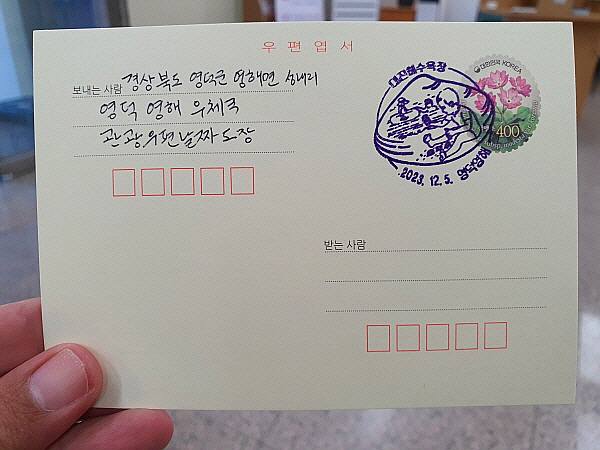 우편엽서
보내는 사람 경상북도 영덕군 영해면 성내리
영덕 영해 우체국
관광우편날짜도장
대진해수욕장
2023. 12. 5. 영덕영해
대한민국 KOREA
400
받는 사람